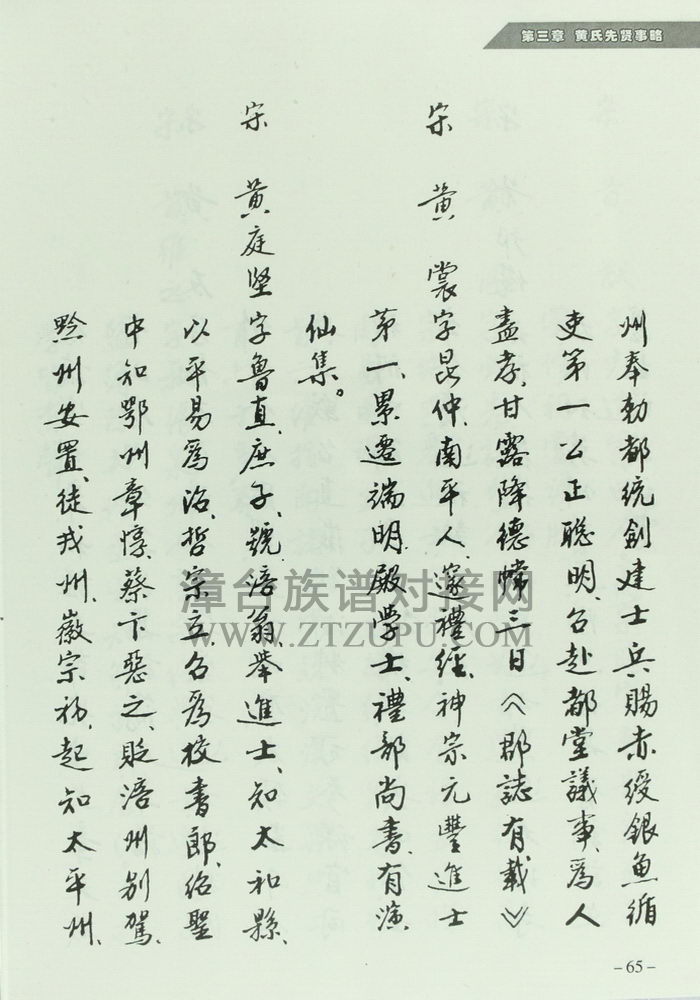 第三章 黄氏先贤事略
州奉勅都统創建士兵賜赤绶銀魚循
吏第一公正聪明、召赴都堂議事、爲人
盡孝、甘露降德幃三日《郡誌有載》
宋 黄 裳字昆仲、南平人、邃禮经、神宗元豐進士
第一、累遷端明殿学士、禮部尚書、有演
仙集。
宋 黄庭坚字鲁直、庶子、號涪翁举進士、知太和縣、
以平易爲治、哲宗立、召爲校書郎、绍聖
中知鄂州章惇、蔡卞惡之、貶涪州别駕、
黔州安置、徒戎州、徽宗初、起知太平州、
漳台族谱对接网
WWW.ZTZUPU.COM
–65–